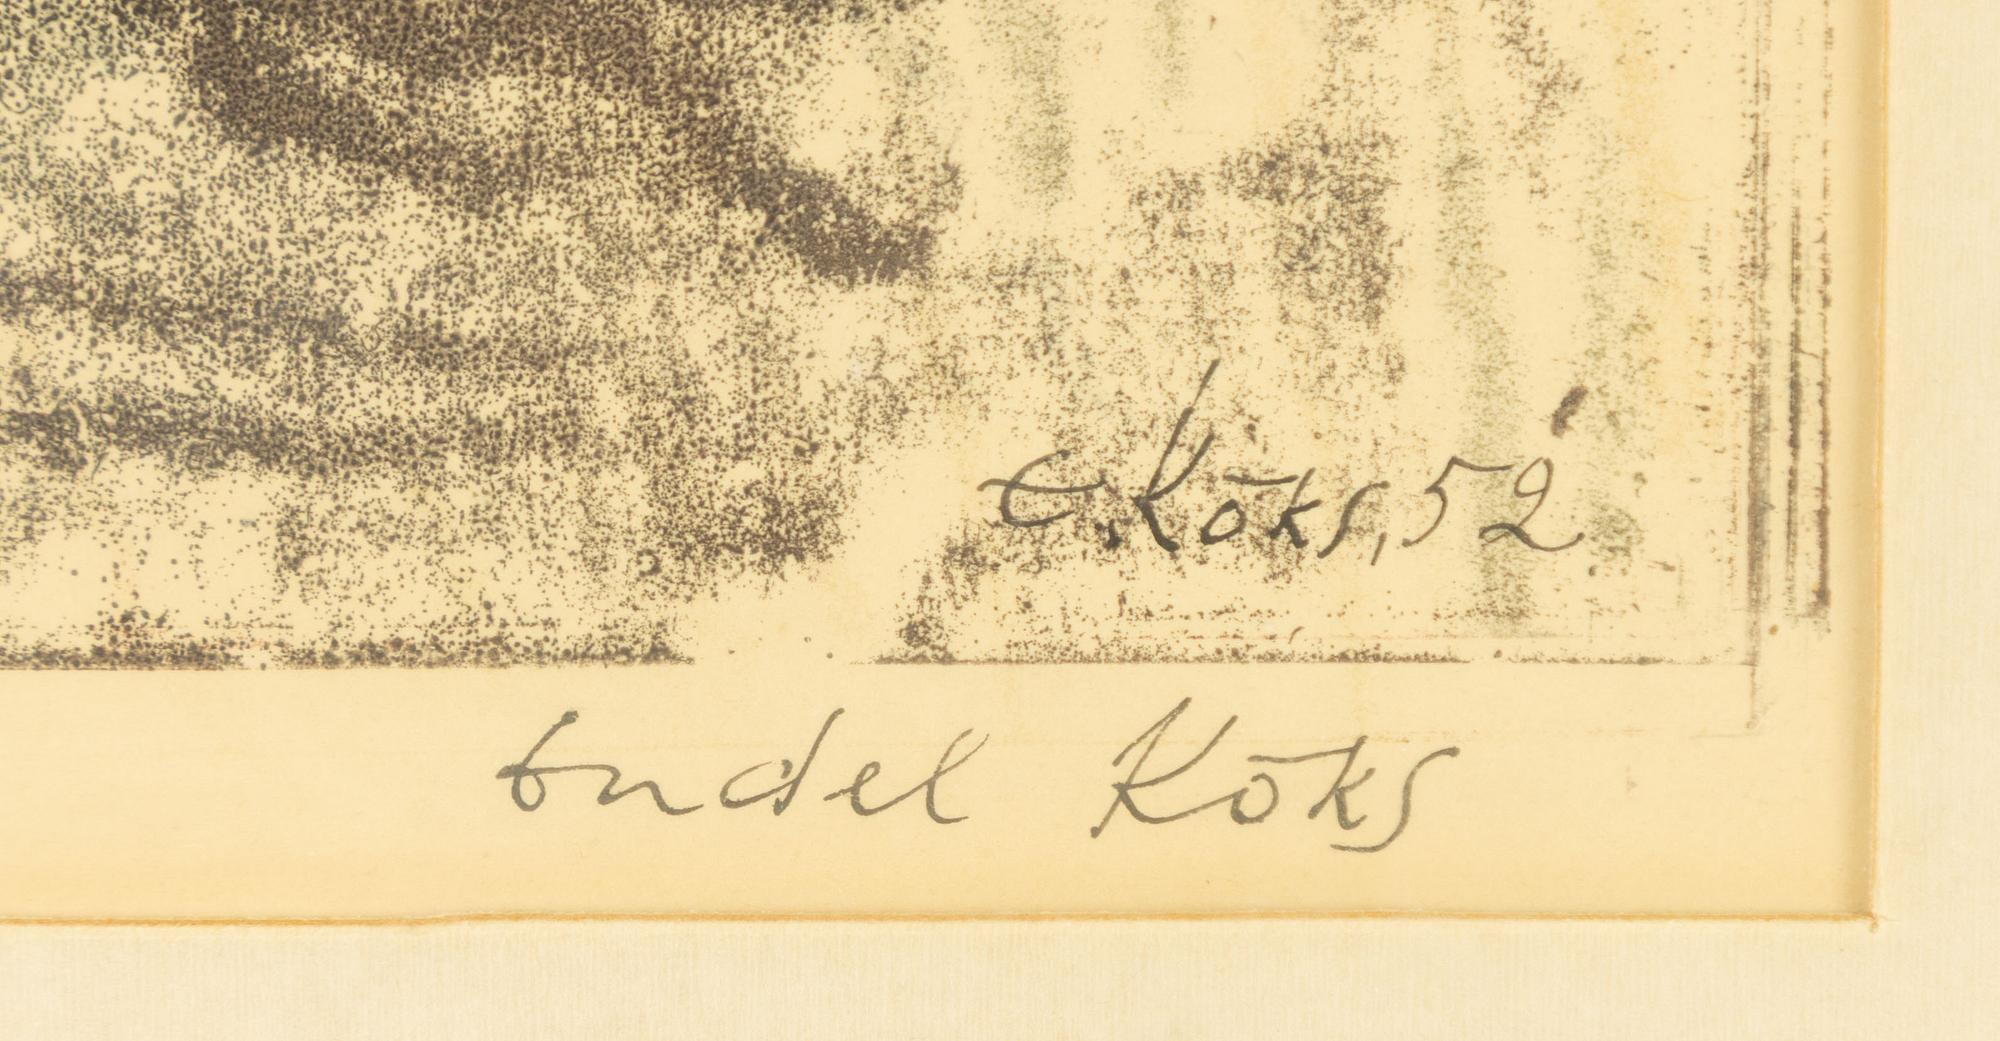 E. Kõks, 52
Endel Kõks